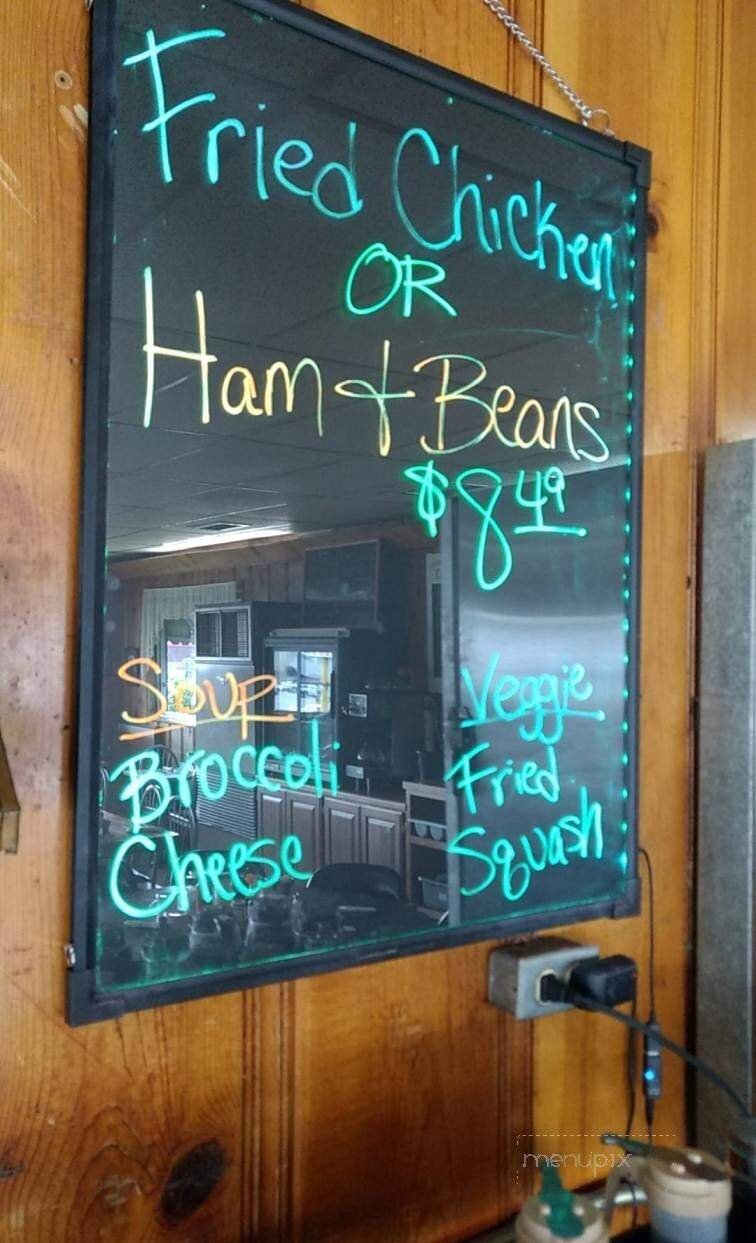 Fried Chicken
OR
Ham & Beans
$8.49
Soup
Broccoli
Cheese
Veggie
Fried
Squash
menupix